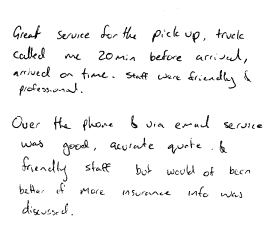 Great service for the pick up, truck
called me 20 min before arrival,
arrived on time. Staff were friendly &
professional.
Over the phone & via email service
was good, acurate quote. &
friendly staff but would of been
better if more insurance info was
discussed.